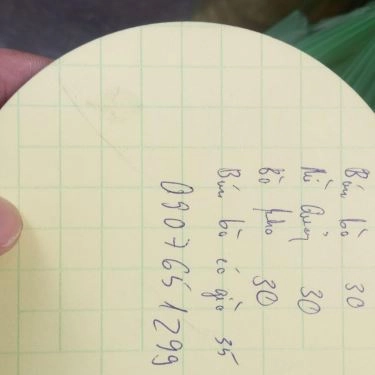 Bún bò 30
Mì Quảng 30
Bò kho 30
Bún bò có giò 35
0907651299